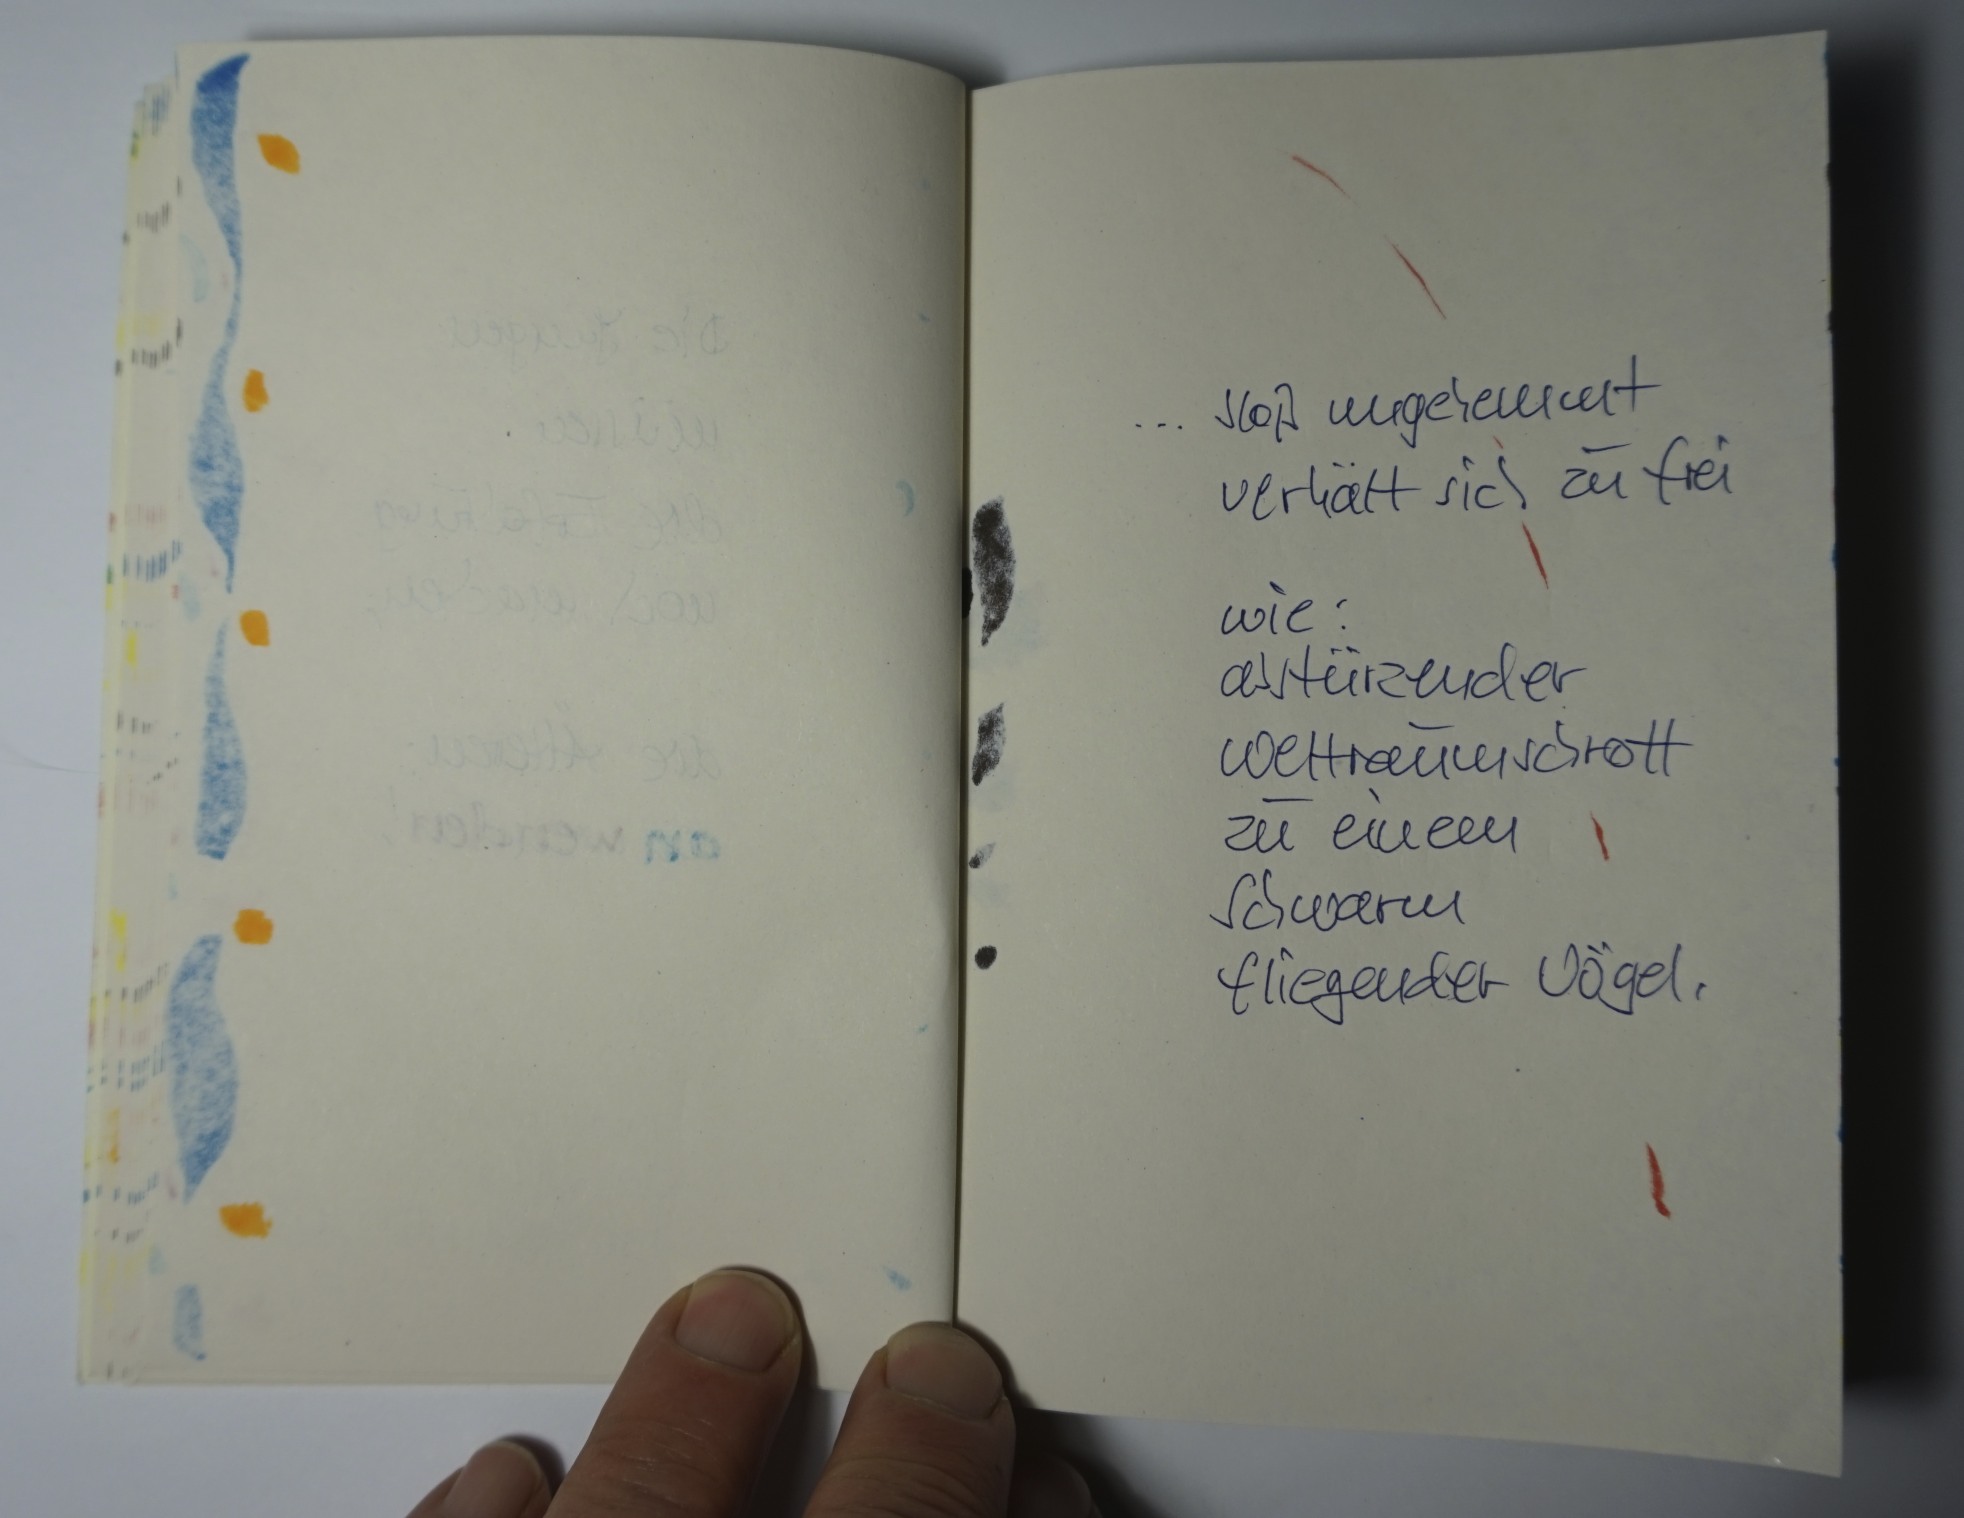 ... bloß ungehemmt
verhält sich zu frei
wie:
abstürzender
weltraumschrott
zu einem
schwarm
fliegender Vögel.